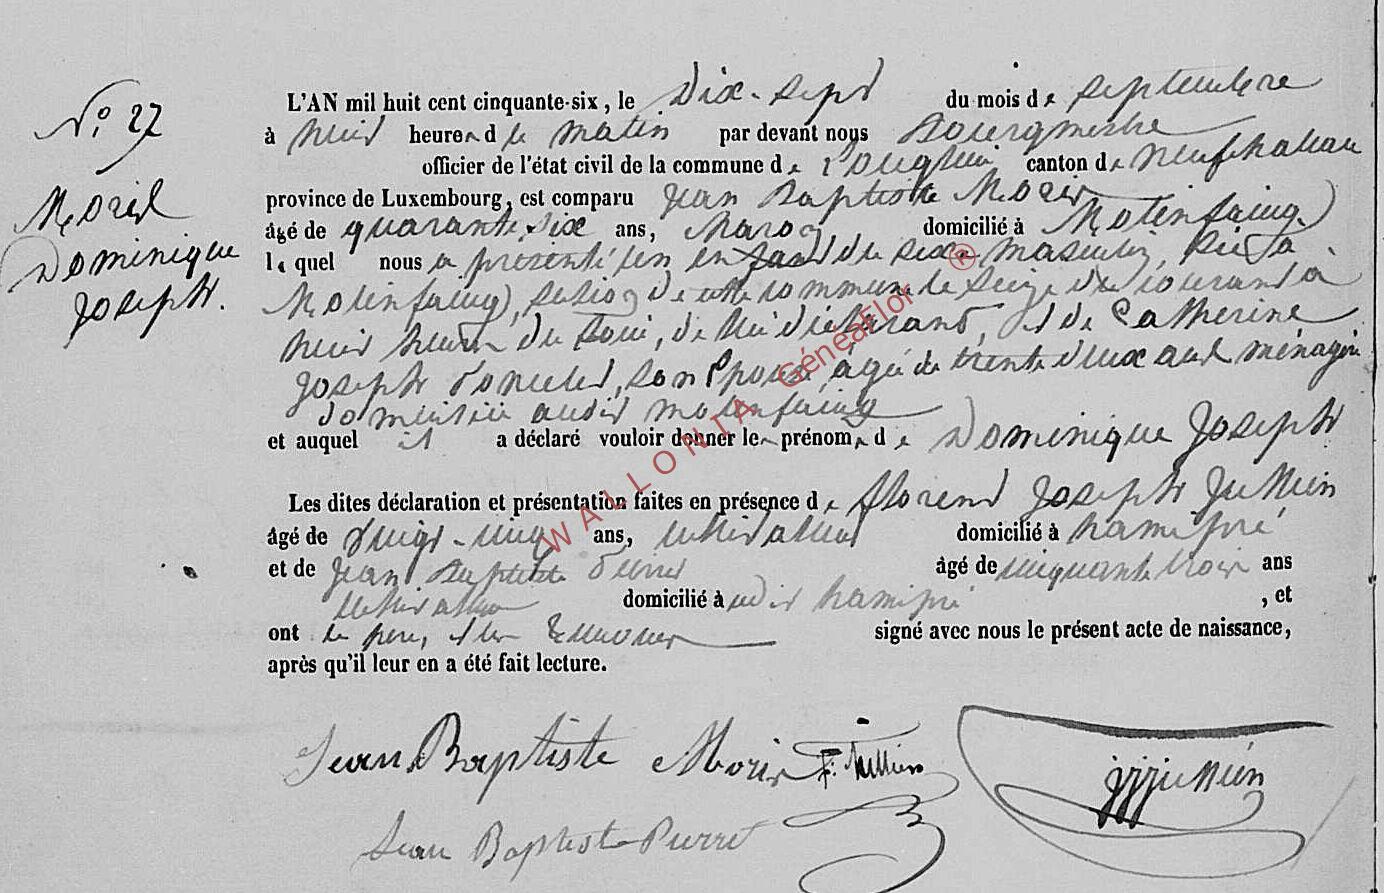 N° 27
Moris
Dominique
Joseph.
L'AN mil huit cent cinquante-six, le dix-sept du mois de septembre
à neuf heures du matin par devant nous Bourgmestre
officier de l'état civil de la commune de Longlier canton de neufchateau
province de Luxembourg, est comparu Jean Baptiste Moris
âgé de quarante six ans, domicilié à Molinfaing
lequel nous a présenté un enfant du sexe masculin, né à
Molinfaing, section de cette commune le seize du courant à
neuf heures du soir, de lui déclarant, et de Catherine
Joseph son épouse, âgée de trente deux ans ménagère
domiciliée audit molinfaing
et auquel il a déclaré vouloir donner les prénoms de Dominique Joseph
Les dites déclaration et présentation faites en présence de florent Joseph Jullien
âgé de vingt-cinq ans, cultivateur domicilié à hamipré
et de Jean Baptiste Pierret âgé de cinquante trois ans
cultivateur domicilié à udit hamipré, et
ont le père, et les témoins signé avec nous le présent acte de naissance,
après qu'il leur en a été fait lecture.
Jean Baptiste Moris F. Jullien jjjullien
Jean Baptiste Pierret
WALLONIA GénéaFlor ®